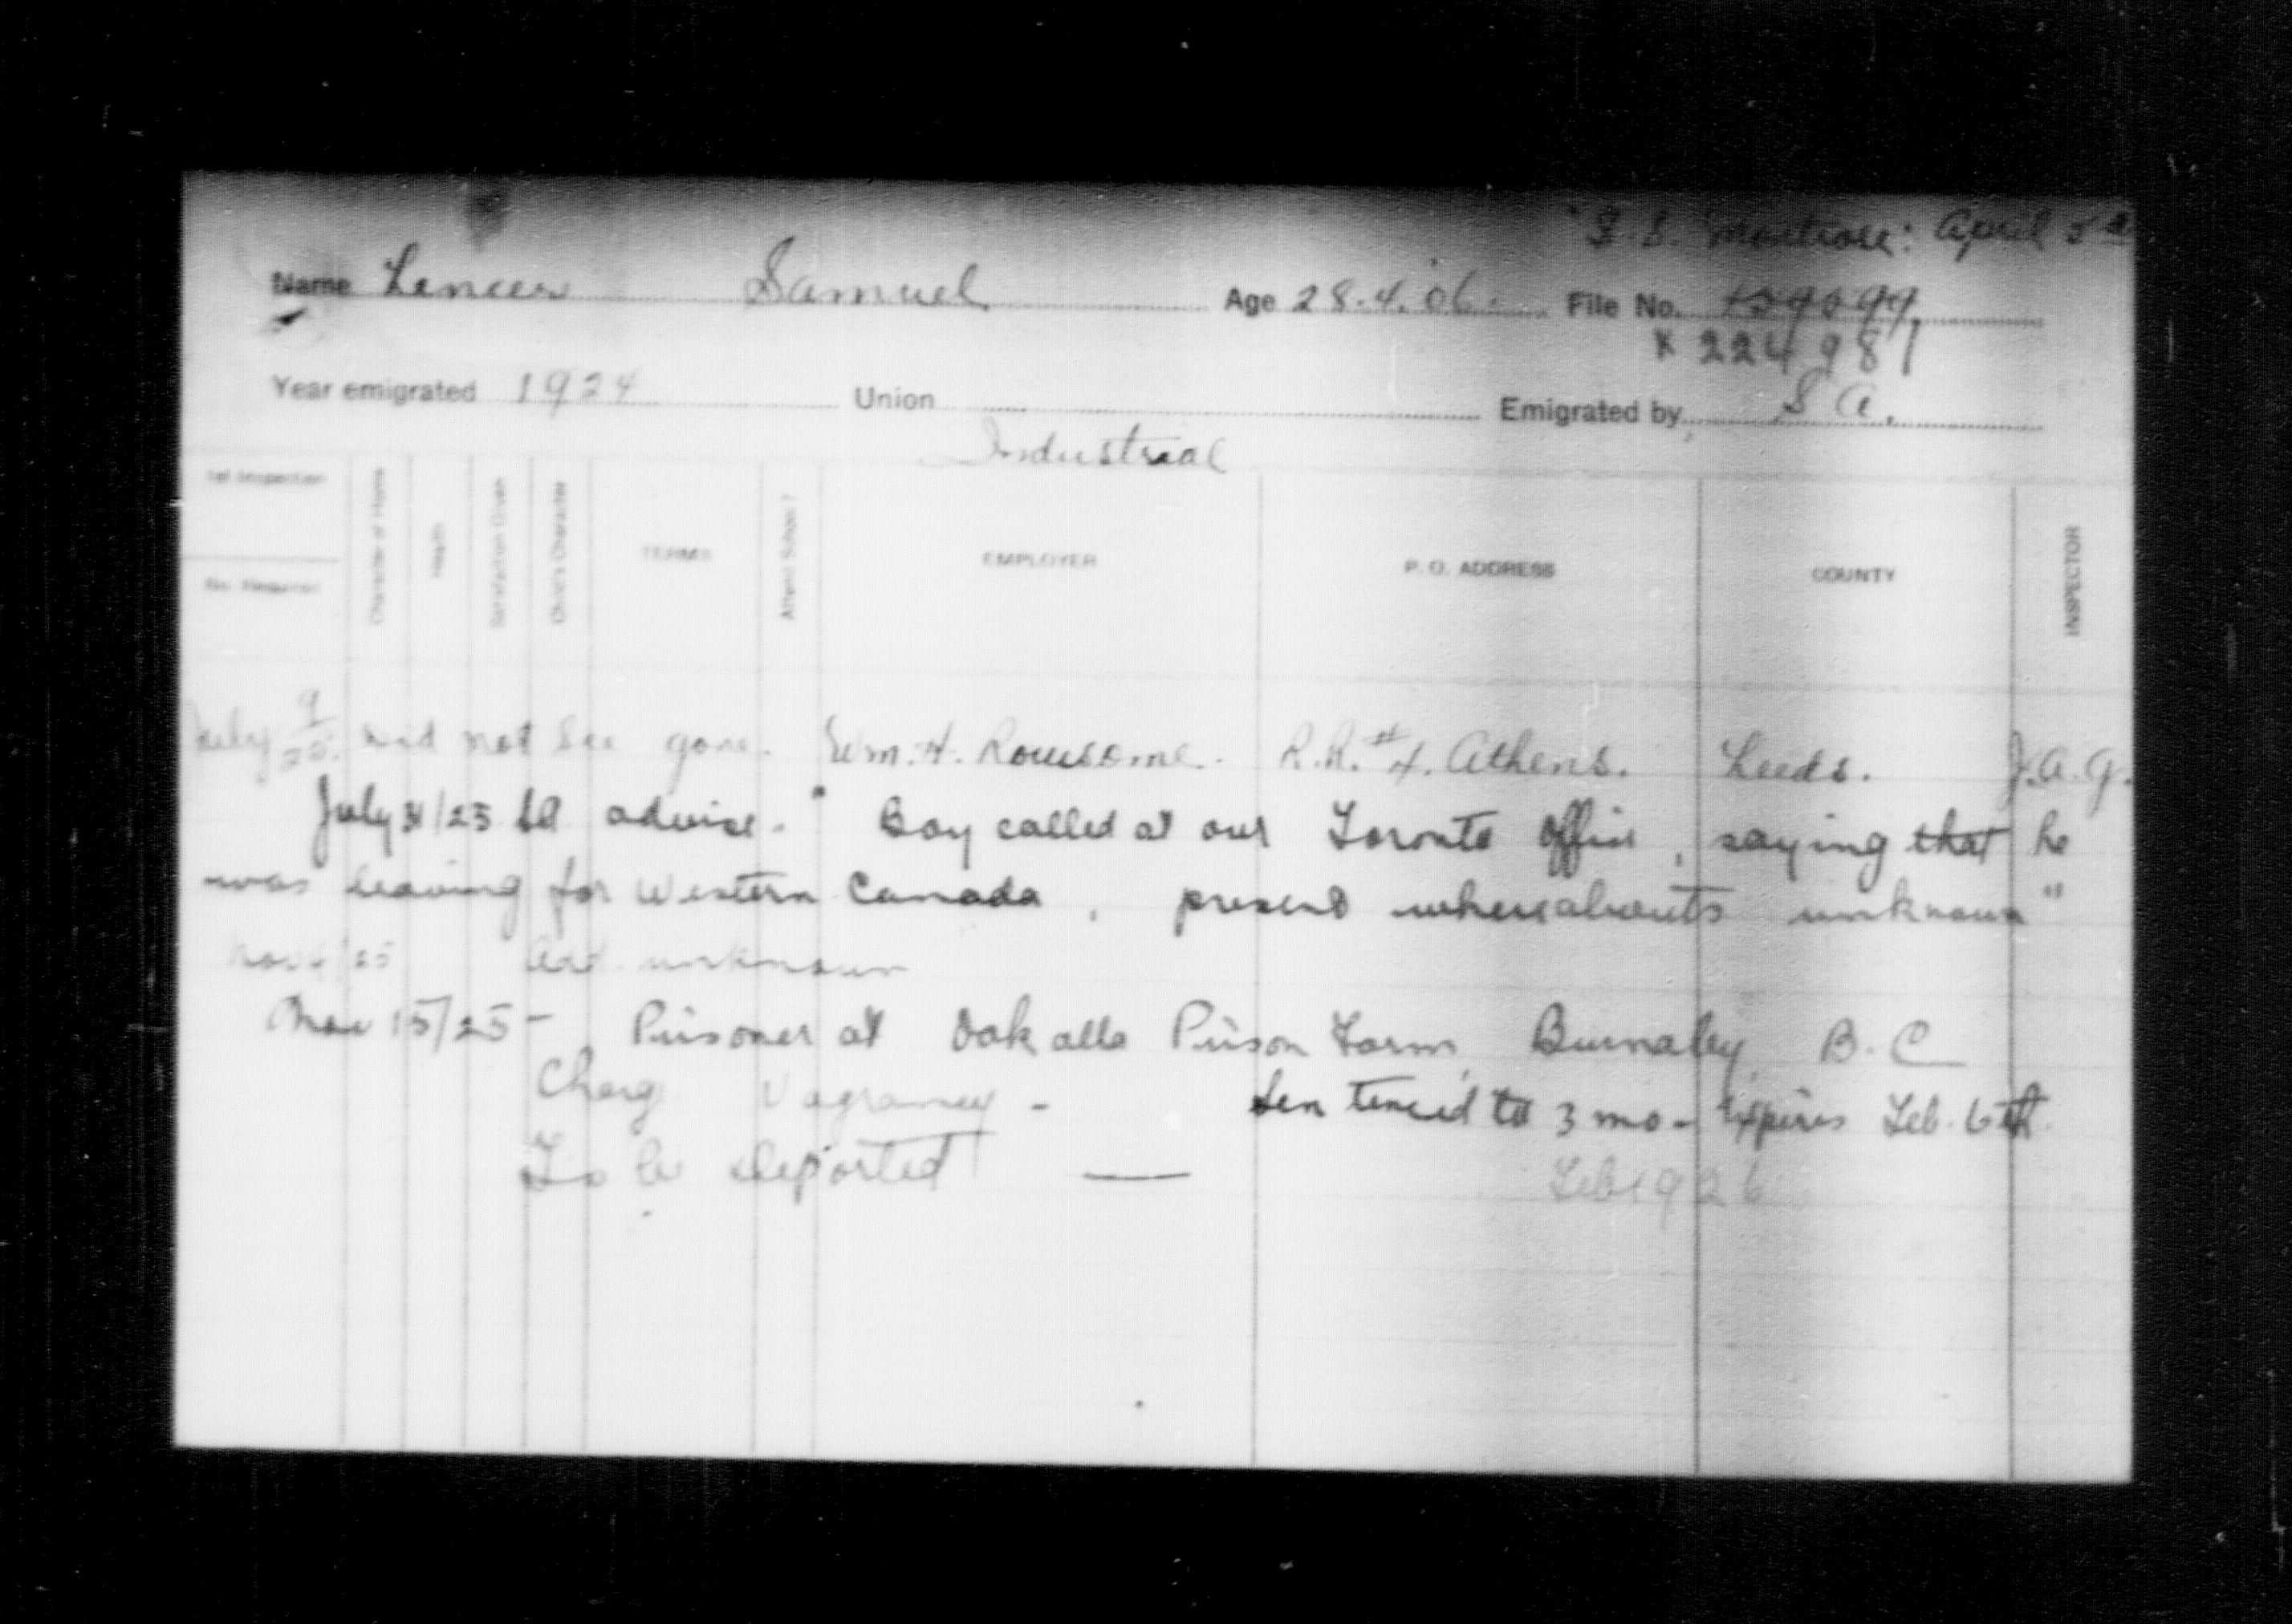 S.S. Montrose: April 5
Name Samuel Age 28.4.06. File No.
x 224981
Year emigrated 1924 Union Emigrated by S A.
Industrial
1st Inspection Character of Home Health Satisfaction Given Child's Character TERMS Attend School? EMPLOYER P. O. ADDRESS COUNTY INSPECTOR
No. Required
July 9/25. Did not see gone. Wm. H. Rowsome. R.R. #4. Athens. Leeds. J.A.G.
July 31/25 SA advise. " Boy called at our Toronto office, saying that he
was leaving for Western Canada, present whereabouts unknown"
/25 add. unknown
Nov 15/25 - Prisoner at Oakalla Prison Farm, Burnaby B.C
Charg Vagrancy - Sentenced to 3 mo - Expires Feb. 6th.
To be deported — Feb 1926